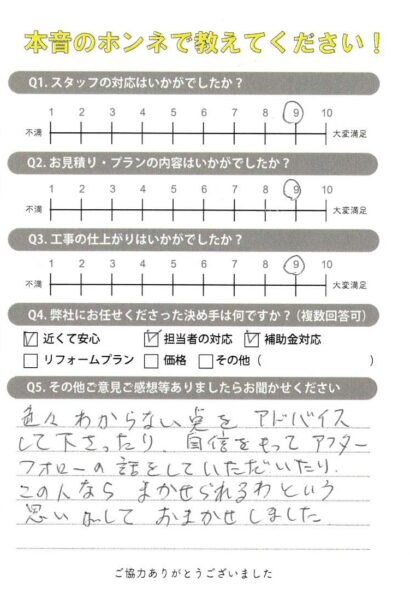 本音のホンネで教えてください！
Q1. スタッフの対応はいかがでしたか？
1 2 3 4 5 6 7 8 9 10
不満 大変満足
Q2. お見積り・プランの内容はいかがでしたか？
1 2 3 4 5 6 7 8 9 10
不満 大変満足
Q3. 工事の仕上がりはいかがでしたか？
1 2 3 4 5 6 7 8 9 10
不満 大変満足
Q4. 弊社にお任せくださった決め手は何ですか？（複数回答可）
☑ 近くて安心 ☑ 担当者の対応 ☑ 補助金対応
□ リフォームプラン □ 価格 □ その他（ ）
Q5. その他ご意見ご感想等ありましたらお聞かせください
色々わからない点を アドバイス
して下さったり、自信をもって アフター
フォローの話をしていただいたり、
この人なら まかせられるわ という
思い して おまかせしました
ご協力ありがとうございました